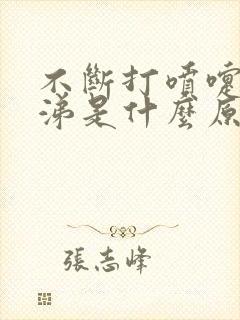 不斷打噴嚏
涕是什麼原
張志峰